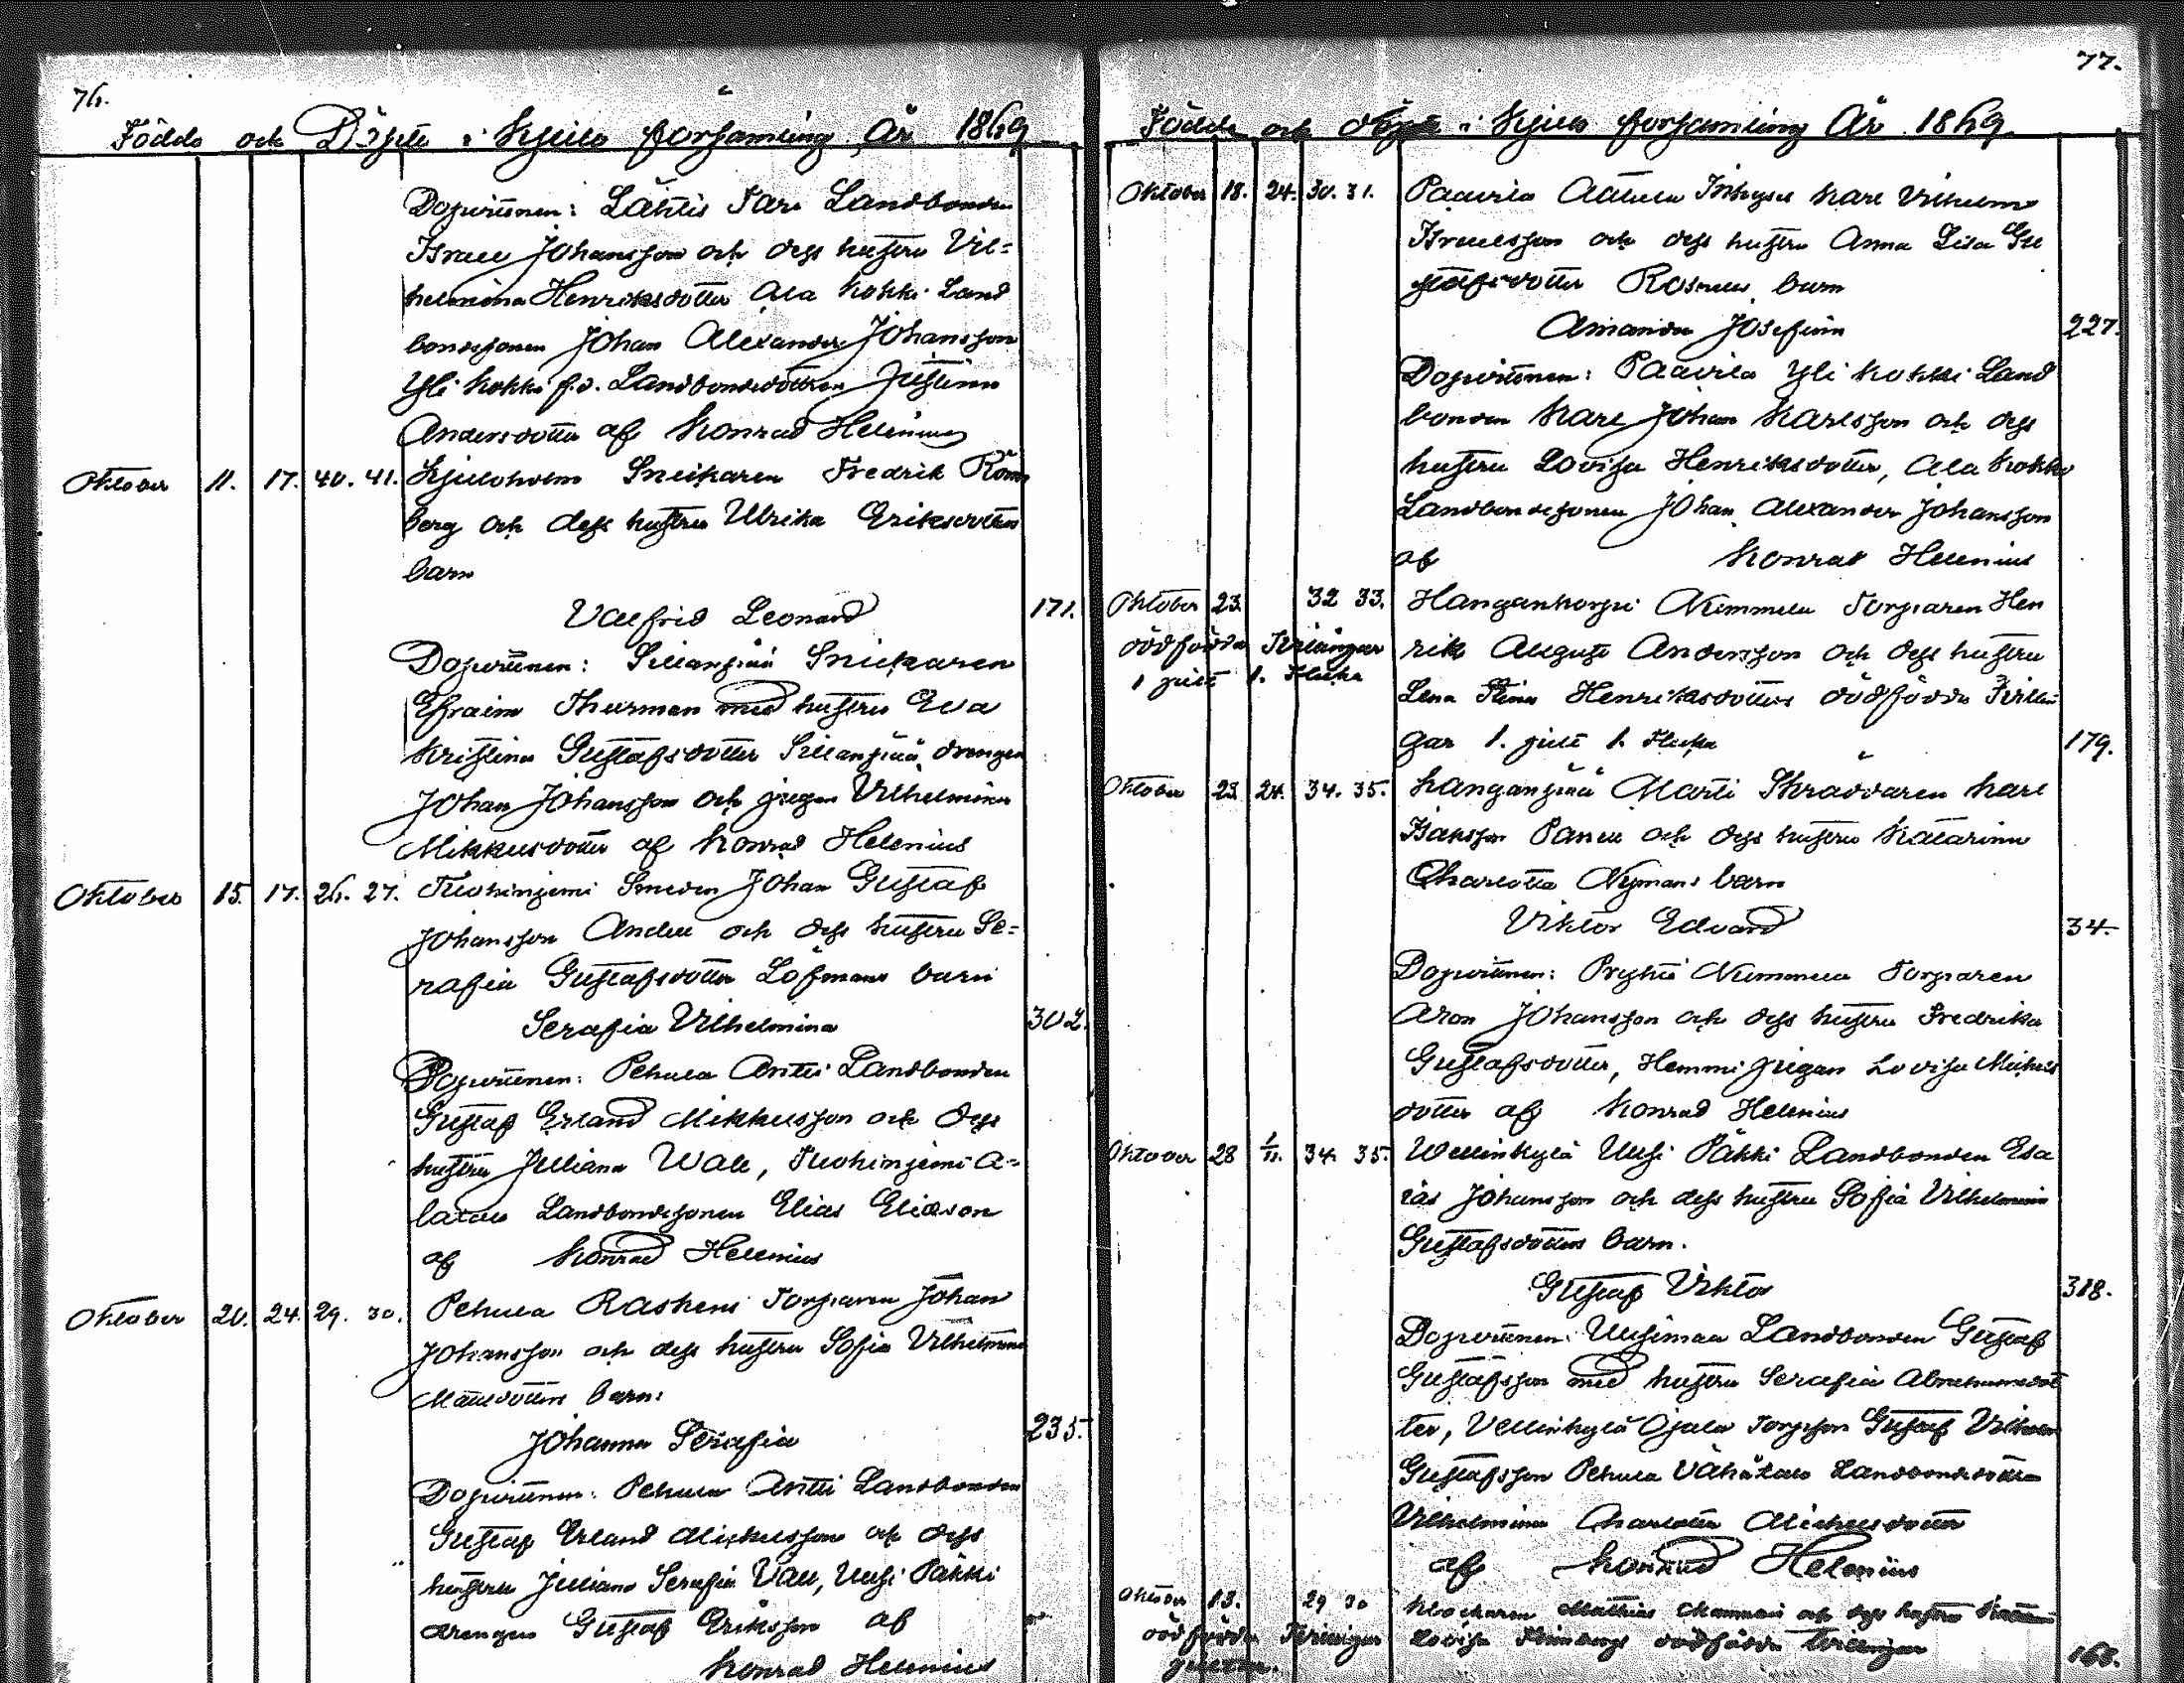 76.
Födde och Döpte i Kjulo församling År 1869
Dopvittnen: Lähtis Landbonden
Israel Johansson och dess hustru Vil=
helmina Henriksdotter Ala Kokki Land
bondesonen Johan Alexander Johansson
Yli Kokki f.d. Landbondedottren Justinn
Andersdotter af Konrad Helenius
Oktober 11. 17. 40. 41. Kjuloholm Snickaren Fredrik Röm
berg och dess hustru Ulrika Eriksdotters
barn
Valfrid Leonard 171.
Dopvittnen: Snickaren
Efraim Thurman med hustru Eva
Kristina Gustafsdotter drengen
Johan Johansson och pigan Vilhelmina
Mikkelsdotter af Konrad Helenius
Oktober 15. 17. 26. 27. Tuohiniemi Smeden Johan Gustaf
Johansson och dess hustru Se=
rafia Gustafsdotter Löfmans barn
Serafia Vilhelmina 302.
Dopvittnen: Pehula Antti Landbonden
Gustaf Erland Mikkelsson och dess
hustru Juliana Wall, Tuohiniemi A=
latalo Landbondesonen Elias Eliasson
af Konrad Helenius
Oktober 20. 24. 29. 30. Pehula Torparen Johan
Johansson och dess hustru Sofia Vilhelmina
Mattsdotters barn:
Johanna Serafia 235.
Dopvittnen: Pehula Antti Landbonden
Gustaf Erland Mickelsson och dess
hustru Juliana Serafia Vall, Uusi Päkki
drengen Gustaf Eriksson af
Konrad Helenius
77.
Födde och döpte i Kjulo församling År 1869.
Oktober 18. 24. 30. 31. Paavila Karl Vilhelm
Israelsson och dess hustru Anna Lisa Gu
stafsdotter barn
Amanda Josefina 227.
Dopvittnen: Paavila Yli Kokki Land
bonden Karl Johan Karlsson och dess
hustru Lovisa Henriksdotter, Ala Kokki
Landbondesonen Johan Alexander Johansson
af Konrad Helenius
Oktober 23. 32 33. Hangankorpi Nummela Torparen Hen
dödfödda Tvillingar rik August Andersson och dess hustru
1 gilt 1. Flicka Lena Stina Henriksdotters dödfödda Tvillin
gar 1. gilt 1. Flicka 179.
Oktober 23 24. 34. 35. Kanganpää Martti Skräddaren Karl
Isaksson och dess hustru Katarina
Charlotta Nymans barn
Viktor Edvard 34.
Dopvittnen: Nummela Torparen
Aron Johansson och dess hustru Fredrika
Gustafsdotter, Hemmi pigan Lovisa Michels
dotter af Konrad Helenius
Oktober 28 1/11. 34. 35. Wellinkylä Uusi Päkki Landbonden Esa
ias Johansson och dess hustru Sofia Vilhelmina
Gustafsdotters barn.
Gustaf Viktor 318.
Dopvittnen: Uusimaa Landbonden Gustaf
Gustafsson med hustru Serafia Abrahamsdot
ter, Vellinkylä Ojala Torpson Gustaf Vilhelm
Gustafsson Pehula Vähätalo Landbondedottren
Vilhelmina Charlotta Michelsdotter
af Konrad Helenius
Oktober 13. 29 30 Klockaren Mathias och dess hustru
dödfödda Tvillingar Lovisa dödfödda tvillingar
168.